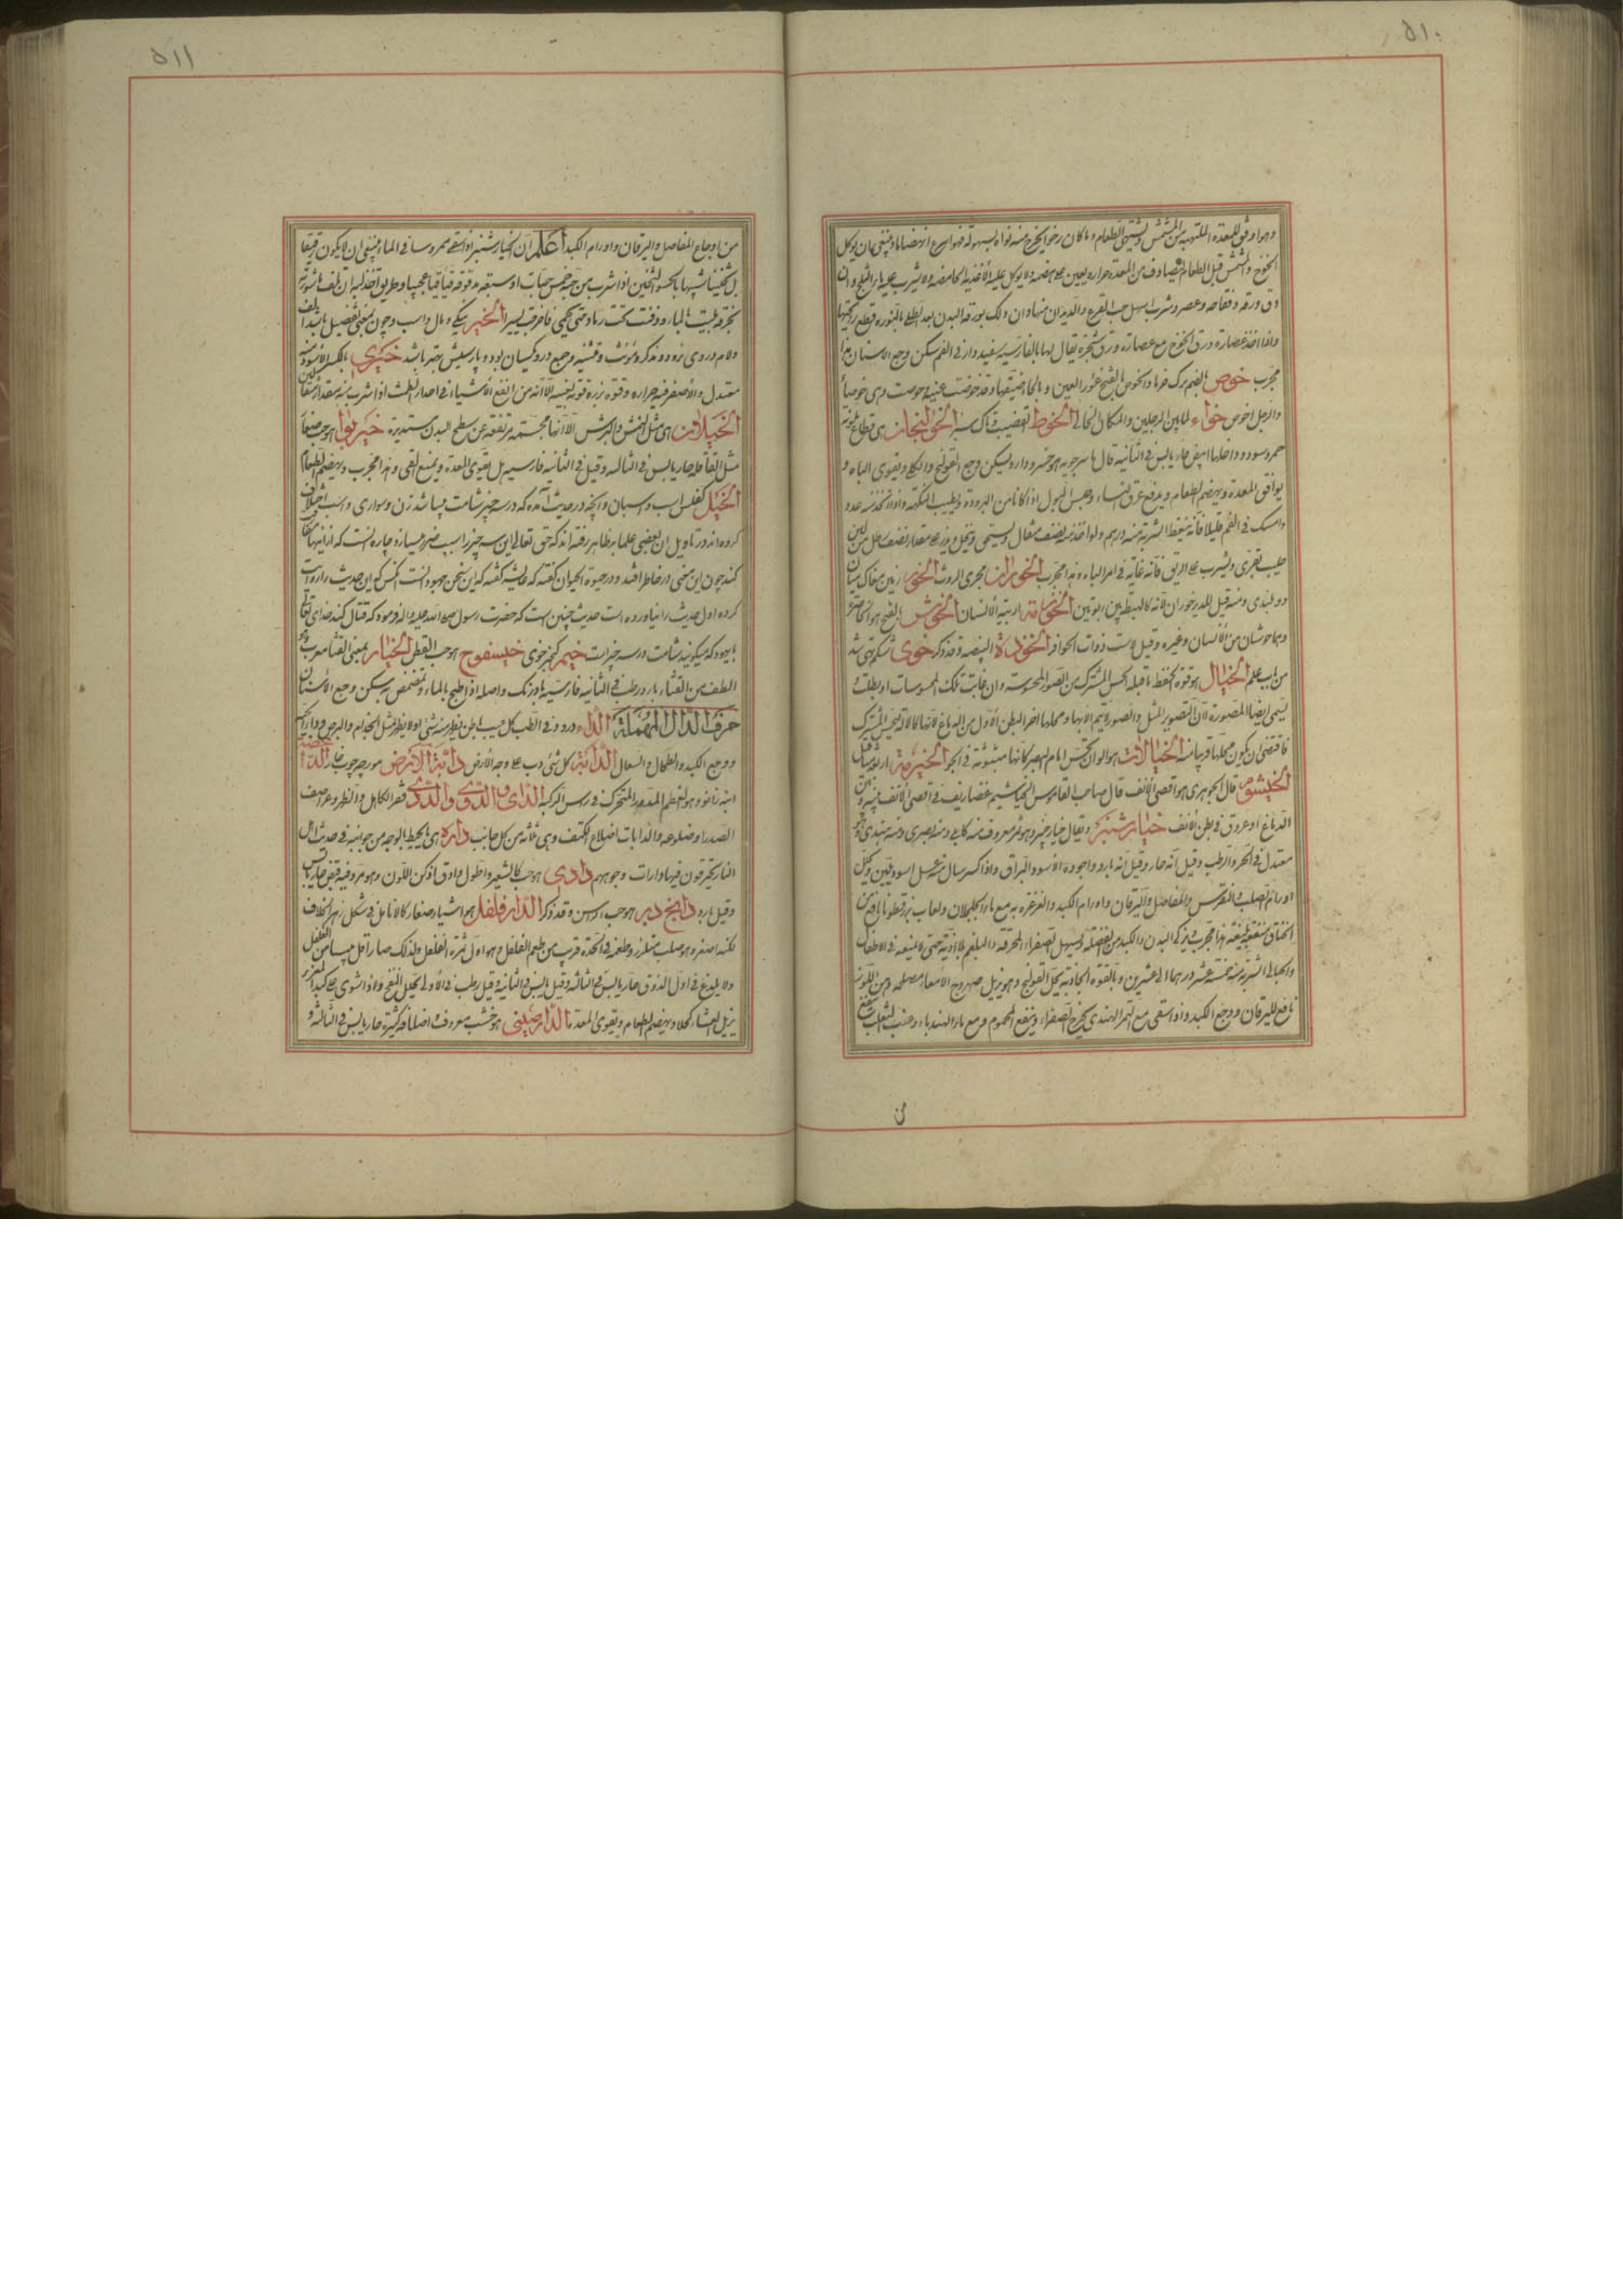 ٥١٠
وهو اوفق للمعدة الملتهبة من المشمش ويشتهى الطعام وما كان رخوا يخرج منه نواه بسهولة فهو اسرع انهضاما وينبغى ان يوكل
الخوخ والمشمش قبل الطعام ليصادف من المعدة حرارة يعين على هضمه ولا يوكل عليه الاغذية الحامضة ولا يشرب عليه ماء الثلج وان
دق ورقه وفقاحه وعصر وشرب اسهل حب القرع والديدان منها وان دلك بورقه البدن بعد الطلى بالنورة قطع رائحتها
واذا اخذ عصارة ورق الخوخ مع عصارة ورق شجرة يقال لها بالفارسية سفيددار فى الفم سكن وجع الاسنان هذا
مجرب خوص بالضم برك خرما والخوص بالفتح غور العين وبالحاء ضيقها وقد خوصت عينه وحوصت وهى خوصاء
والرجل اخوص خواء لما بين الرجلين والمكان الخالى الخوط القضيب وتاك سبز الخولنجان هى قطاع ملتوية
حمر وسود وداخلها ابيض حار يابس فى الثانية قال ماسرجويه هو خسرودارو يسكن وجع القولنج والكلى ويقوى الباه و
يوافق المعدة ويهضم الطعام ويدفع عرق النساء وحبس البول اذا كانا من البرودة ويطيب النكهة واذا اخذ منه عود
وامسك فى الفم قليلا فانه ينعظ الشربة منه درهم ولو اخذ منه نصف مثقال ويسحق وينخل ويذر على مقدار نصف رطل من لبن
حليب بقرى ويشرب على الريق فانه غاية فى امر الباه وهذا مجرب الخوران مجرى الروث الخور زمين مغاك ميان
دو بلندى ومنه قيل للدبر خوران لانه كالهبطة بين ربوتين الخوثامة ارنبة الانسان الخوش بالفتح هو الخاصرة
وهما خوشان من الانسان وغيره وقيل لاست ذوات الحوافر الخوذة البيضة وقد ذكر خوى شكم تهى شد
من باب علم الخيال هو قوة تحفظ ما قبله الحس المشترك من الصور المحسوسة وان غابت تلك المحسوسات او بطلت و
يسمى ايضا المصورة لان التصوير المثل والصور لا يتم الا بها ومحلها اخر البطن الاول من الدماغ لانها كالآلة للحس المشترك
فاقتضى ان يكون محلها قريبا منه الخيالات هو الوان تحس امام البصر كانها مبثوثة فى الجو الخيرمة
الخيشوم قال الجوهرى هو اقصى الانف قال صاحب القاموس الخياشيم غضاريف فى اقصى الانف بينه وبين
الدماغ او عروق فى بطن الانف خيارشنبر ويقال خيار چنبر وهو ثمر معروف منه كابلى ومنه بصرى ومنه هندى وهو
معتدل فى الحر والرطب وقيل انه حار وقيل انه بارد واجوده الاسود البراق واذا كسر سال منه عسل اسود يلين ويحلل
اورام الصلب والنقرس والمفاصل واليرقان واورام الكبد والغرغرة به مع ماء الجلجلان ولعاب بزرقطونا نافع من
الخناق منفعة بليغة هذا مجرب ويزكى البدن والكبد من الفضلة ويسهل الصفراء المحرقة والبلغم بلا اذية حتى لا يمنع فى الاطفال
والحبالى الشربة منه خمسة عشر درهما الى عشرين وبالقوة الجاذبة يحل القولنج وهو يزيل صهروج الامعاء مصلحه دهن اللوز
نافع لليرقان ووجع الكبد واذا سقى مع التمر الهندى يخرج الصفراء وينفع المحموم ومع ماء الهندباء وعنب الثعلب ينفع
من
٥١١
من اوجاع المفاصل واليرقان واورام الكبد اعلم ان الخيارشنبر اذا سقى ممروسا فى الماء ينبغى ان لا يكون رقيقا
بل ثخينا شبيها بالحسو الثخين اذا شرب من حبه خمس حبات او سبعة مدقوقة قيأ قيئا عجيبا وطريق اخذ لبه ان يلف قشوره
بخرقة بليت بالماء ودفنت تحت رماد حتى يحمى فاخرجت يسيرا الخير نيكى ومال واسب وچون بمعنى تفضيل باشد الف
ولام در وى نرود ومذكر ومؤنث وتثنيه وجمع در وى يكسان بود وپارسيش بهتر باشد خيرى بالكسر الاسود منه
معتدل والاصفر فيه حرارة وقوة بزره قوته بعينه الا انه من انفع الاشياء فى احدار الطمث اذا شرب منه مقدار مثقالين
الخيلان هى مثل النمش والبرش الا انها مجتمعة مرتفعة عن سطح البدن مستديرة خيربوا هو حب صغار
مثل القاقلة حار يابس فى الثالثة وقيل فى الثانية فارسية هل يقوى المعدة ويمنع القى وهذا مجرب ويهضم الطعام
الخيل كفلس اسب واسبان وآنچه در حديث آمده كه در سه چيز شامت ميباشد زن وسوارى واسب اختلاف
كرده اند در تاويل ان بعضى علما بر ظاهر رفته اند كه حق تعالى اين سه چيز را سبب ضرر ميسازد وچاره نيست كه از اينها
كنند چون اين معنى در خاطر افتد ودر حيوة الحيوان گفته كه عايشه گفته كه اين سخن جهودانست انكس كه اين حديث را روايت
كرده اول حديث را نياورده است حديث چنين است كه حضرت رسول صلى الله عليه وآله فرموده كه قتال كند خداى تعالى
با يهود كه ميگويند شامت در سه چيز است خيم كبر خوى خيسفوج هو حب القطن الخيار بمعنى القثا معرب وهو
الطف من القثاء بارد رطب فى الثانية فارسيه بادرنگ واصله اذا طبخ بالماء وتمضمض به سكن وجع الاسنان
حرف الدال المهملة الداء درد وفى الطب كل عيب باطن يظهر منه شئ اولا يظهر مثل الجذام والبرص
ووجع الكبد والطحال والسعال الدابة كل شئ دب على وجه الارض دابة الارض مورچه چوب خار الداغصة
آينه زانو وهو العظم المدور المتحرك فى راس الركبة الداى والدؤى والدئى فقر الكاهل والظهر وغراضيف
الصدر او ضلوعه والدايات اضلاع الكتف وهى ثلثة من كل جانب دارة هى ما يحيط بالوجه من جوانبه فى حديث اهل
النار يحترقون فيها الا دارات وجوههم دادى هو حب كالشعير واطول وادق ادكن اللون وهو مر وفيه قبض حار يابس
وقيل بارد دانج دبر هو حب الراسن وقد ذكر الدارفلفل هو اشياء صغار كالانامل فى شكل زهر الخلاف
لكنه اصغر وهو صلب متلزز وطعمه فى الحدة قريب من طعم الفلفل وهو اول ثمرة الفلفل ولذلك صار اقل يبسا من الفلفل
ولا يلدغ فى اول الذوق حار يابس فى الثالثة وقيل يابس فى الثانية وقيل رطب فى الاولى يحلل النفخ واذا شوى مع كبد المعز
يزيل العشاء كحلا ويهضم الطعام ويقوى المعدة الدارصينى هو خشب معروف واصنافه كثيرة حار يابس فى الثالثة و